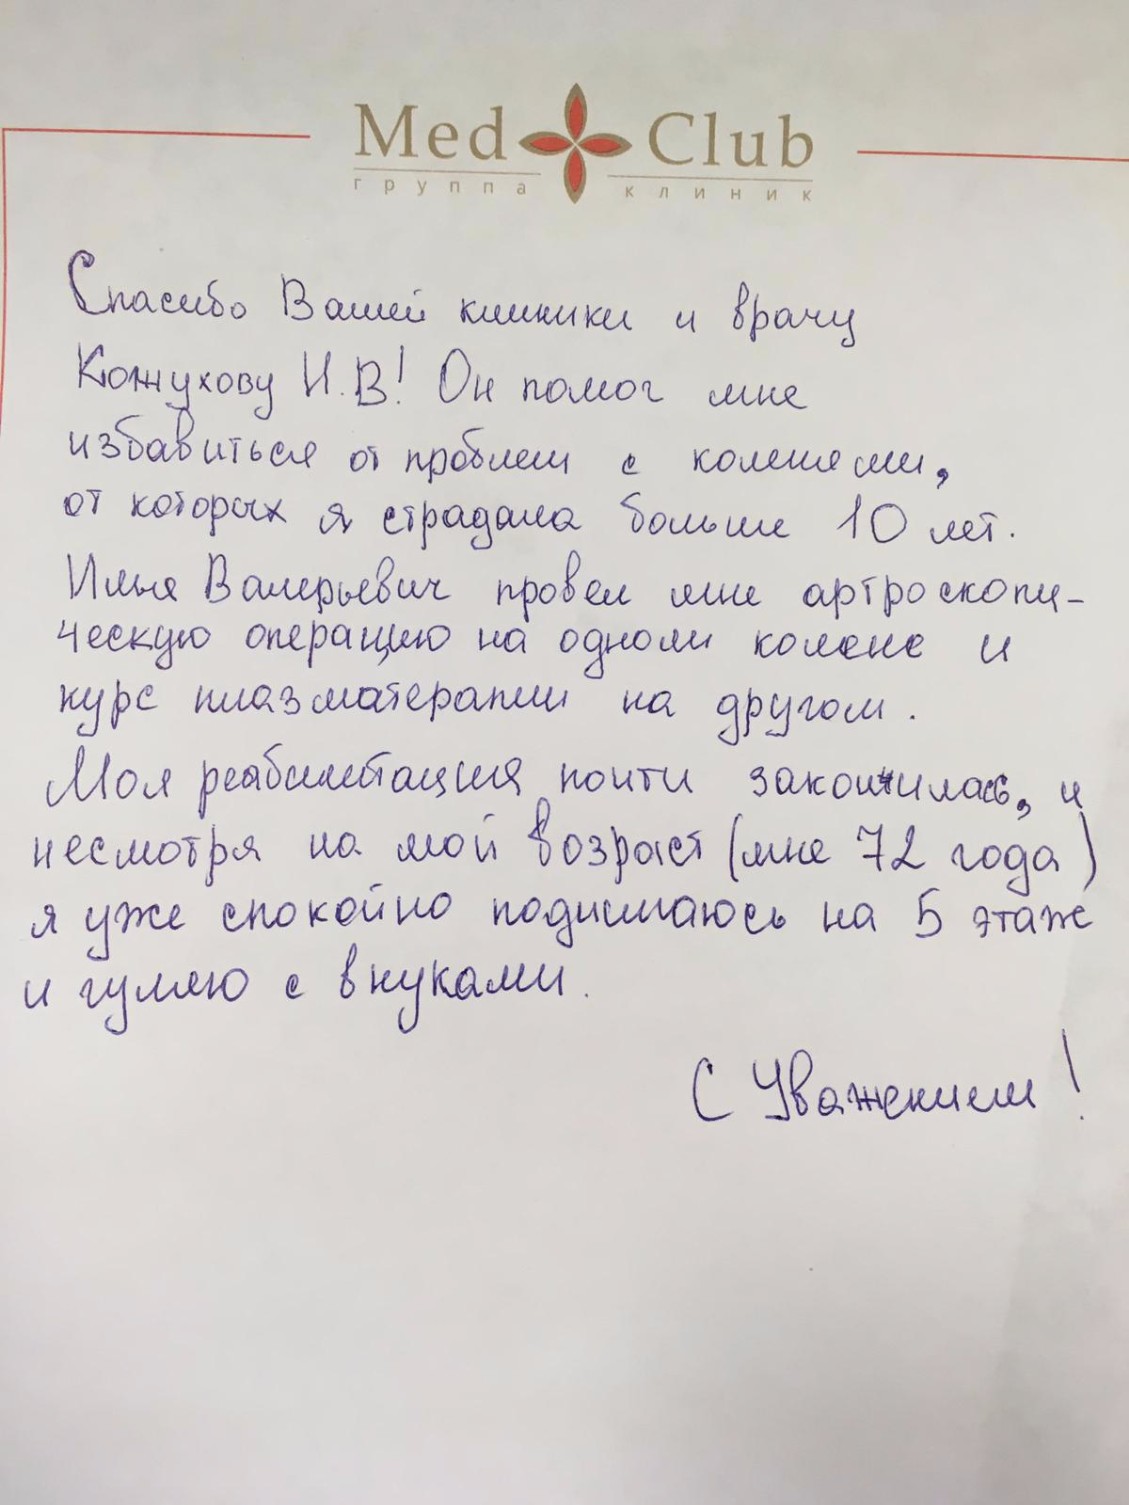 Med Club
группа клиник
Спасибо Вашей клиники и врачу
Кожухову И.В! Он помог мне
избавиться от проблем с коленями,
от которых я страдала больше 10 лет.
Илья Валерьевич провел мне артроскопи-
ческую операцию на одном колене и
курс плазматерапии на другом.
Моя реабилитация почти закончилась, и
несмотря на мой возраст (мне 72 года)
я уже спокойно поднимаюсь на 5 этаж
и гуляю с внуками.
С Уважением!